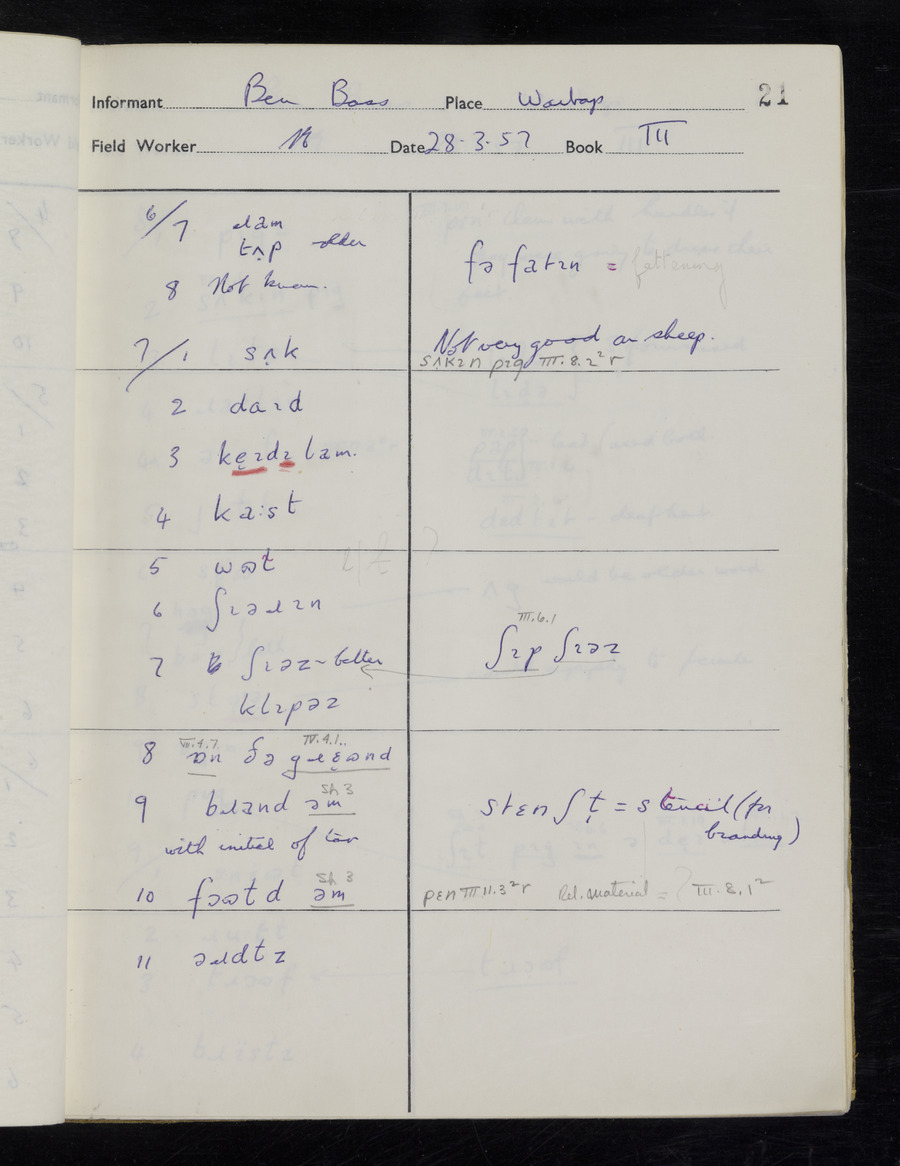 Informant Ben Boss Place Warsop 21
Field Worker Date 28.3.57 Book III
6/7 ɹam
tʌ̣p older
fə fatɪn = fettening
8 Not known.
7/1 sʌ̣k
Not very good on sheep.
sʌ̣kɪn pɪg III.8.2² r
2 daɪd
3 kẹɪdɪ lam.
4 ka:st
5 wɒt
6 ʃɪəɹɪn
III.6.1
ʃɪp ʃɪəz
7 ʃɪəz ~ better
klɪpəz
8 VII.4.7. ɒn ðə IV.4.1.. gɹɛʊnd
9 bɹand Sh 3 əm
with initial of tar
stɛnʃḷ = stencil (for
branding)
10 Sh 3 əm
pɛn III.11.3² r Rel. material = III.8.1²
11 əɹdtz